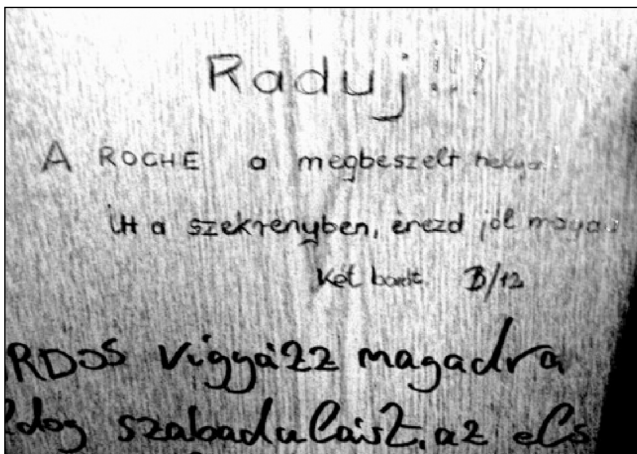 Raduj!!!
A ROCHE a megbeszelt helye
itt a szekrenyben, erezd jól maga
Két barát B/12
RDOS Vigyázz magadra
ldog szabadulást, az els